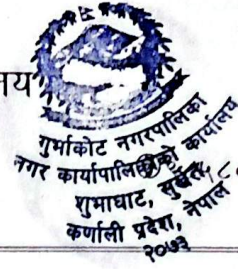 य
गुर्भाकोट नगरपालिका
नगर कार्यपालिकाको कार्यालय
शुभाघाट, सुर्खेत
कर्णाली प्रदेश, नेपाल
२०७३